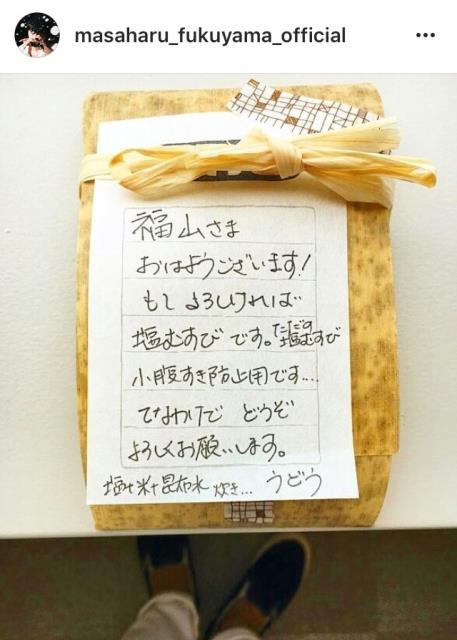 masaharu_fukuyama_official
福山さま
おはようございます!
もしよろしければ
塩むすびです。ただの塩むすび
小腹すき防止用です…
てなわけで どうぞ
よろしくお願いします。
塩+米+昆布水 炊き… うどう